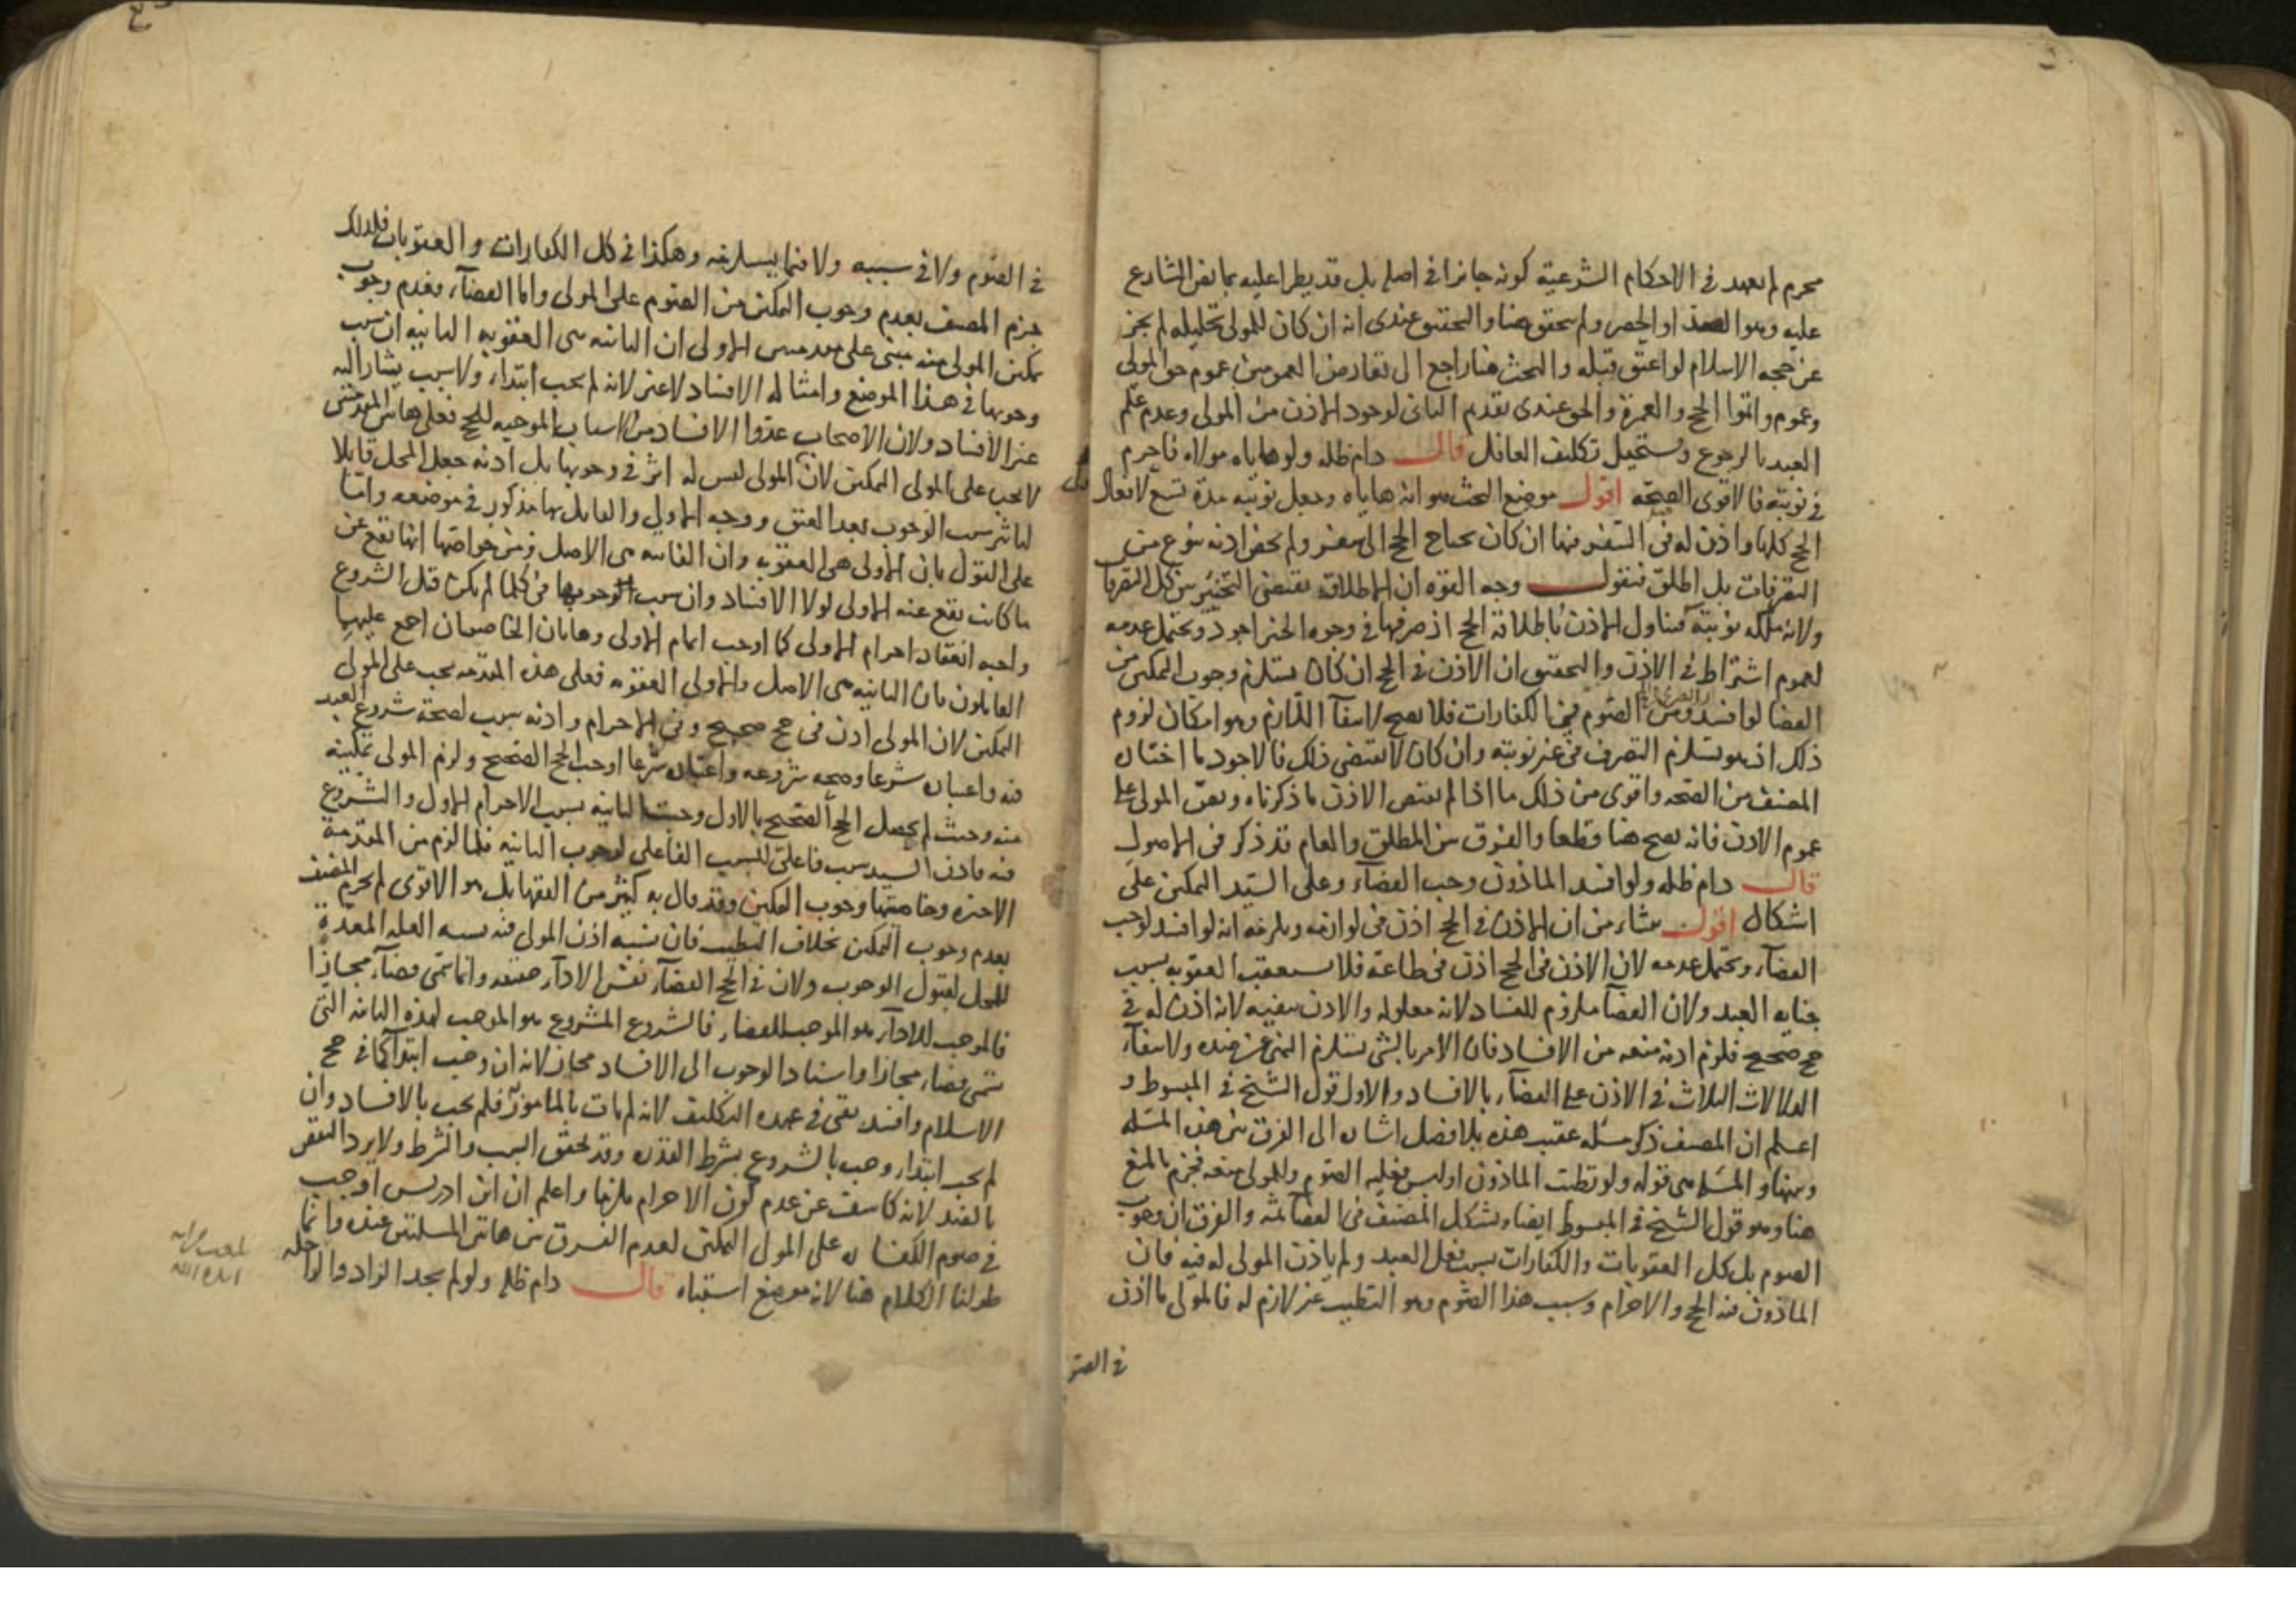 محرم لم يعهد في الاحكام الشرعية كونه جائزا في اصله بل قد يطرا عليه بما نص الشارع
عليه وهو الصد او الحصر ولم يتحقق هنا والتحقيق عندى انه ان كان للمولى تحليله لم يجز
عن حجه الاسلام لو اعتق قبله والبحث هنا راجع الى تعارض العمومين عموم حق المولى
وعموم واتموا الحج والعمرة والحق عندى تقديم الثانى لوجود الاذن من المولى وعدم علم
العبد بالرجوع ويستحيل تكليف الغافل قال دام ظله ولو هاياه مولاه فاحرم
في نوبته فالاقوى الصحة اقول موضع البحث هو انه هاياه وجعل نوبته مدة تسع لافعال
الحج كلها واذن له في السفر فيها ان كان يحتاج الحج الى سفر ولم يخص اذنه بنوع من
التصرفات بل اطلق فنقول وجه القوه ان الاطلاق يقتضى التخيير بين كل التصرفات
ولانه ملكه نوبته فتناول الاذن باطلاقه الحج اذ صرفها في وجوه الخير اجود ويحتمل عدمه
لعموم اشتراط الاذن والتحقيق ان الاذن في الحج ان كان يستلزم وجوب التمكين من
القضا لو افسد ومن الصوم في الكفارات فلا يصح لانتفآ اللازم وهو امكان لزوم
ذلك اذ هو يستلزم التصرف في غير نوبته وان كان لا يقتضى ذلك فالاجود ما اختاره
المصنف من الصحه واقوى من ذلك ما اذا لم يقتض الاذن ما ذكرناه ونص المولى على
عموم الاذن فانه يصح هنا قطعا والفرق بين المطلق والعام قد ذكر في الاصول
قال دام ظله ولو افسد الماذون وجب القضآء وعلى السيد التمكين على
اشكال اقول منشاء من ان الاذن في الحج اذن في لوازمه ويلزمه انه لو افسد لوجب
القضآء ويحتمل عدمه لان الاذن في الحج اذن في طاعة فلا يستعقب العقوبه بسبب
جنايه العبد ولان القضآ ملزوم للفساد لانه معلوله والاذن ينفيه لانه اذن له في
حج صحيح فلزم اذنه منعه من الافساد فان الامر بالشى يستلزم النهى عن ضده ولانتفآء
الدلالات الثلاث في الاذن على القضآء بالافساد والاول قول الشيخ في المبسوط و
اعلم ان المصنف ذكر مسئله عقيب هذه بلا فصل اشاره الى الفرق بين هذه المسئله
وبينها والمسئله هى قوله ولو تطيب الماذون او لبس فعليه الصوم وللمولى منعه فجزم بالمنع
هنا وهو قول الشيخ في المبسوط ايضا واستشكل المصنف في القضا ثمه والفرق ان وجوب
الصوم بل كل العقوبات والكفارات بسبب فعل العبد ولم ياذن المولى له فيه فان
الماذون فيه الحج والاحرام وسبب هذا الصوم وهو التطيب غير لازم له فالمولى ما اذن
في الصو
في الصوم ولا في سببه ولا فيما يستلزمه وهكذا في كل الكفارات والعقوبات فلذلك
جزم المصنف بعدم وجوب التمكين من الصوم على المولى واما القضآء فعدم وجوب
تمكين المولى منه مبنى على مقدمتين الاولى ان الثانيه هى العقوبه الثانيه ان سبب
وجوبها في هذا الموضع وامثاله الافساد لا غير لانه لم يجب ابتداء ولا سبب يشار اليه
غير الافساد ولان الاصحاب عدوا الافساد من الاسباب الموجبه للحج فعلى هاتين المقدمتين
لا يجب على المولى التمكين لان المولى ليس له اثر في وجوبها بل اذنه جعل المحل قابلا
لتاثير سبب الوجوب بعد العتق ووجه الاول والقائل بها مذكور في موضعه واما
على القول بان الاولى هى العقوبه وان الثانيه هى الاصل ومن خواصها انها تقع عن
ما كانت تقع عنه الاولى لولا الافساد وان سبب وجوبها في كلما لم يكن قبل الشروع
واجبه انعقاد احرام الاولى كما اوجب اتمام الاولى وهاتان الخاصيتان اجمع عليها
القايلون بان الثانيه هى الاصل والاولى العقوبه فعلى هذه المقدمه يجب على المولى
التمكين لان المولى اذن في حج صحيح وفي الاحرام واذنه سبب لصحة شروع العبد
فيه واعتباره شرعا وصحه شروعه واعتباره شرعا اوجب الحج الصحيح ولزم المولى تمكينه
منه وحيث لم يحصل الحج الصحيح بالاول وجبت الثانيه بسبب الاحرام الاول والشروع
فيه فاذن السيد سبب فاعلى للسبب الفاعلى لوجوب الثانيه فلما لزم من المقدمة
الاخيره وخاصيتها وجوب التمكين وقد قال به كثير من الفقها بل هو الاقوى لم يجزم المصنف
بعدم وجوب التمكين بخلاف التطيب فان نسبه اذن المولى فيه نسبه العله المعدة
للمحل لقبول الوجوب ولان في الحج القضآء نفس الادآء حقيقه وانما سمى قضآء مجازا
فالموجب للادآء هو الموجب للقضاء فالشروع المشروع هو الموجب لهذه الثانيه التى
تسمى قضاء مجازا واسناد الوجوب الى الافساد مجاز لانه ان وجب ابتدآ كما في حج
الاسلام وافسد بقى في عهدة التكليف لانه لم يات بالمامور فلم يجب بالافساد وان
لم يجب ابتداء وجب بالشروع بشرط القدره وقد تحقق السبب والشرط ولا يرد النقض
بالعبد لانه كاشف عن عدم كون الاحرام ملزما واعلم ان ابن ادريس اوجب
في صوم الكفاره على المولى التمكين لعدم الفرق بين هاتين المسئلتين عنده وانما
طولنا الكلام هنا لانه موضع اشتباه قال دام ظله ولو لم يجد الزاد والراحله